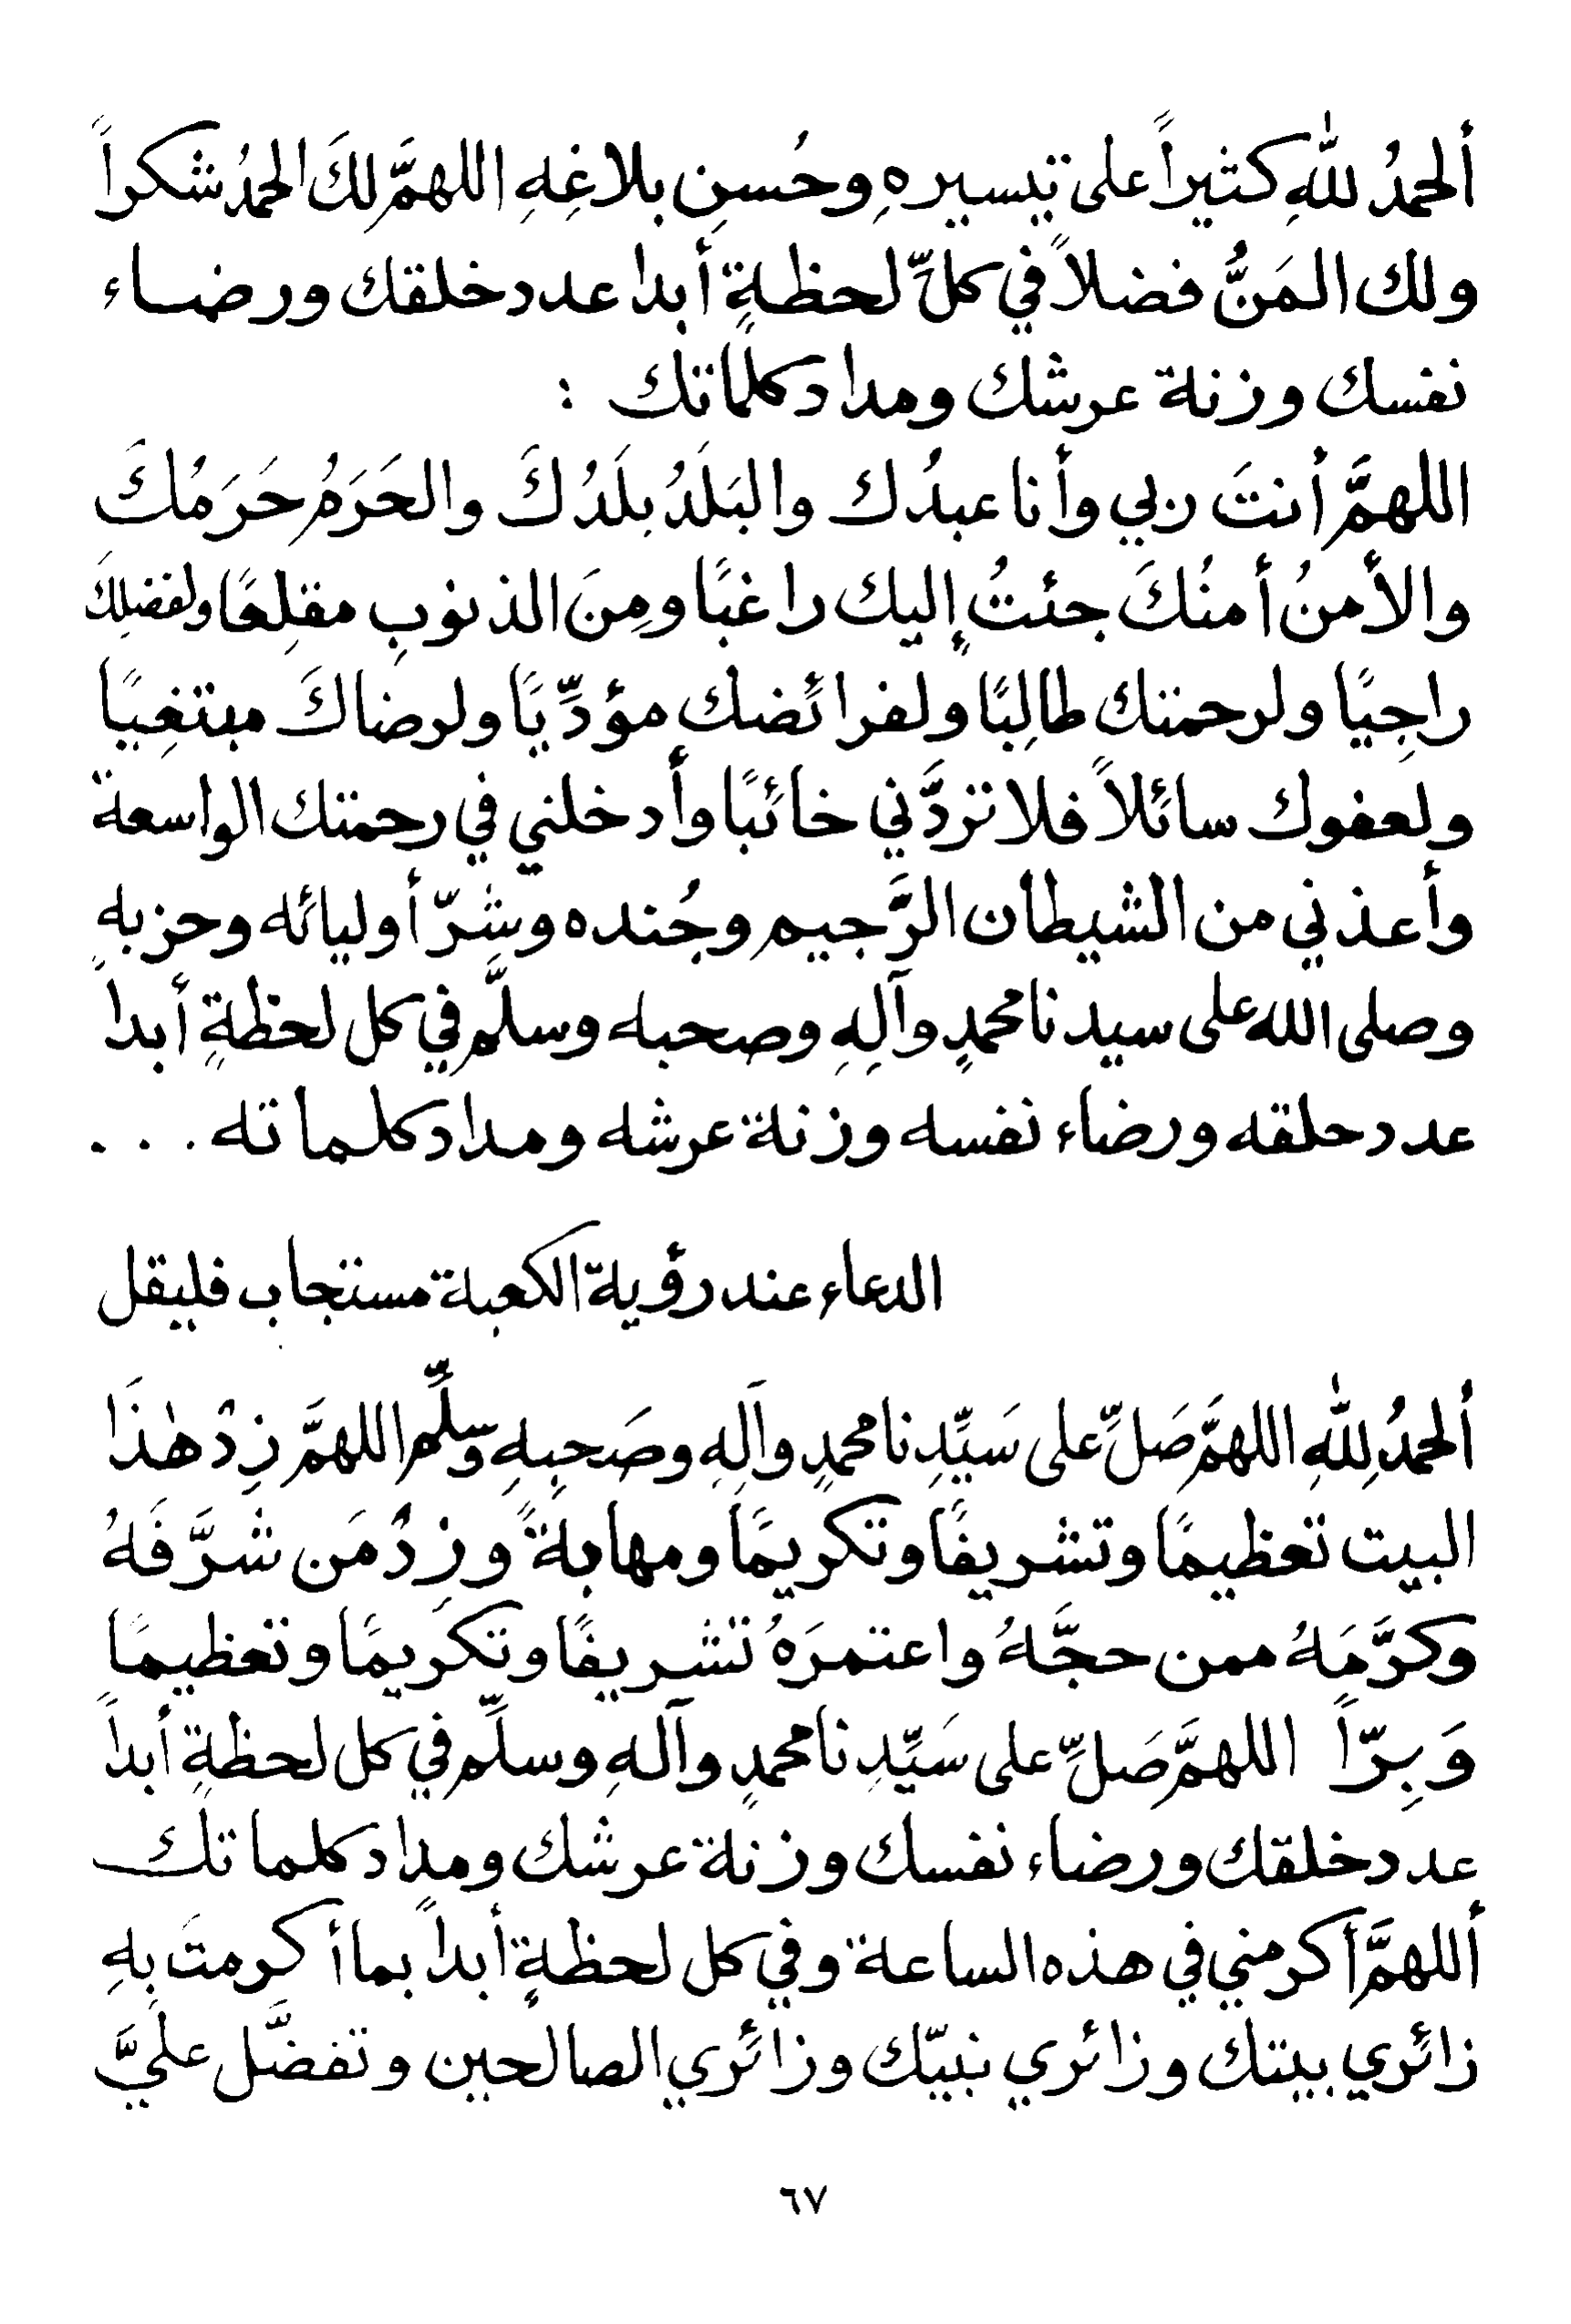 ألحمدُ للهِ كثيراً على تيسيرهِ وحُسنِ بلاغِهِ اللهمَّ لكَ الحمدُ شكراً
ولك المَنُّ فضلاً في كلِّ لحظةٍ أبدا عدد خلقك ورضاء
نفسك وزنة عرشك ومداد كلماتك :
اللهمَّ أنتَ ربي وأنا عبدُك والبَلَدُ بلَدُكَ والحَرَمُ حَرَمُكَ
والأمنُ أمنُكَ جئتُ إليك راغبًا ومِنَ الذنوبِ مقلِعًا ولفضلِكَ
راجِيًا ولرحمتك طالِبًا ولفرائضك مؤدِّيًا ولرضاكَ مبتغِيًا
ولعفوك سائلاً فلا تردَّني خائبًا وأدخلني في رحمتك الواسعة
وأعذني من الشيطان الرَّجيم وجُنده وشرّ أوليائه وحزبهِ
وصلى الله على سيدنا محمدٍ وآلِهِ وصحبه وسلَّم في كل لحظةٍ أبداً
عدد حلقه ورضاء نفسه وزنة عرشه ومداد كلماته . . .
الدعاء عند رؤية الكعبة مستجاب فليقل
ألحمدُ لِلهِ اللهمَّ صَلِّ على سَيِّدِنا محمدٍ وآلِهِ وصَحبِهِ وسلِّم اللهمَّ زِدْ هٰذَا
البيت تعظيمًا وتشريفًا وتكريمًا ومهابةً وزِدْ مَن شرَّفَهُ
وكرَّمَهُ ممن حجَّهُ واعتمرَهُ تشريفًا وتكريمًا وتعظيمًا
وَبِرّاً اللهمَّ صَلِّ على سَيِّدِنا محمدٍ وآلهِ وسلِّم في كل لحظةٍ أبداً
عدد خلقك ورضاء نفسك وزنة عرشك ومداد كلماتك
أللهمَّ أكرمني في هذه الساعة وفي كل لحظةٍ أبداً بما أكرمتَ بِهِ
زائري بيتك وزائري نبيّك وزائري الصالحين وتفضَّل عليَّ
٦٧